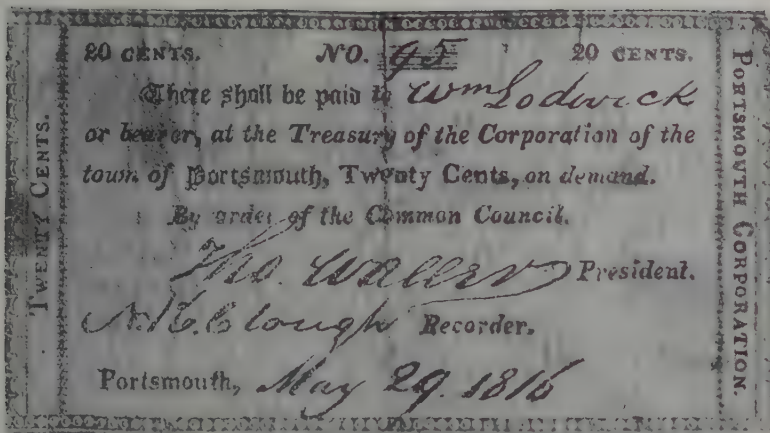 TWENTY CENTS.
20 CENTS. NO. 95 20 CENTS.
There shall be paid to Wm Lodwick
or bearer, at the Treasury of the Corporation of the
town of Portsmouth, Twenty Cents, on demand.
By order of the Common Council.
Tho. Waller President.
N. K. Clough Recorder.
Portsmouth, May 29. 1816
PORTSMOUTH CORPORATION.